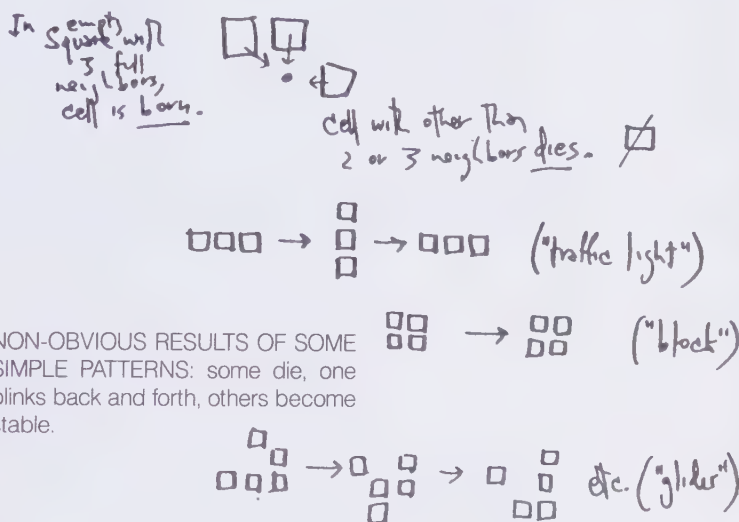 In empty
square with
3 full
neighbors,
cell is born.
cell with other than
2 or 3 neighbors dies.
("traffic light")
("block")
NON-OBVIOUS RESULTS OF SOME
SIMPLE PATTERNS: some die, one
blinks back and forth, others become
stable.
etc. ("glider")